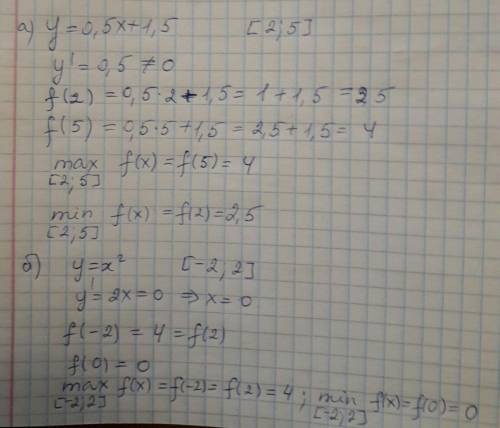 а) y=0,5x+1,5 [2;5]
y'=0,5≠0
f(2)=0,5·2+1,5=1+1,5=25
f(5)=0,5·5+1,5=2,5+1,5=4
max f(x)=f(5)=4
[2;5]
min f(x)=f(2)=2,5
[2;5]
б) y=x² [-2;2]
y'=2x=0 ⇒x=0
f(-2)=4=f(2)
f(0)=0
max f(x)=f(-2)=f(2)=4; min f(x)=f(0)=0
[-2;2] [-2;2]